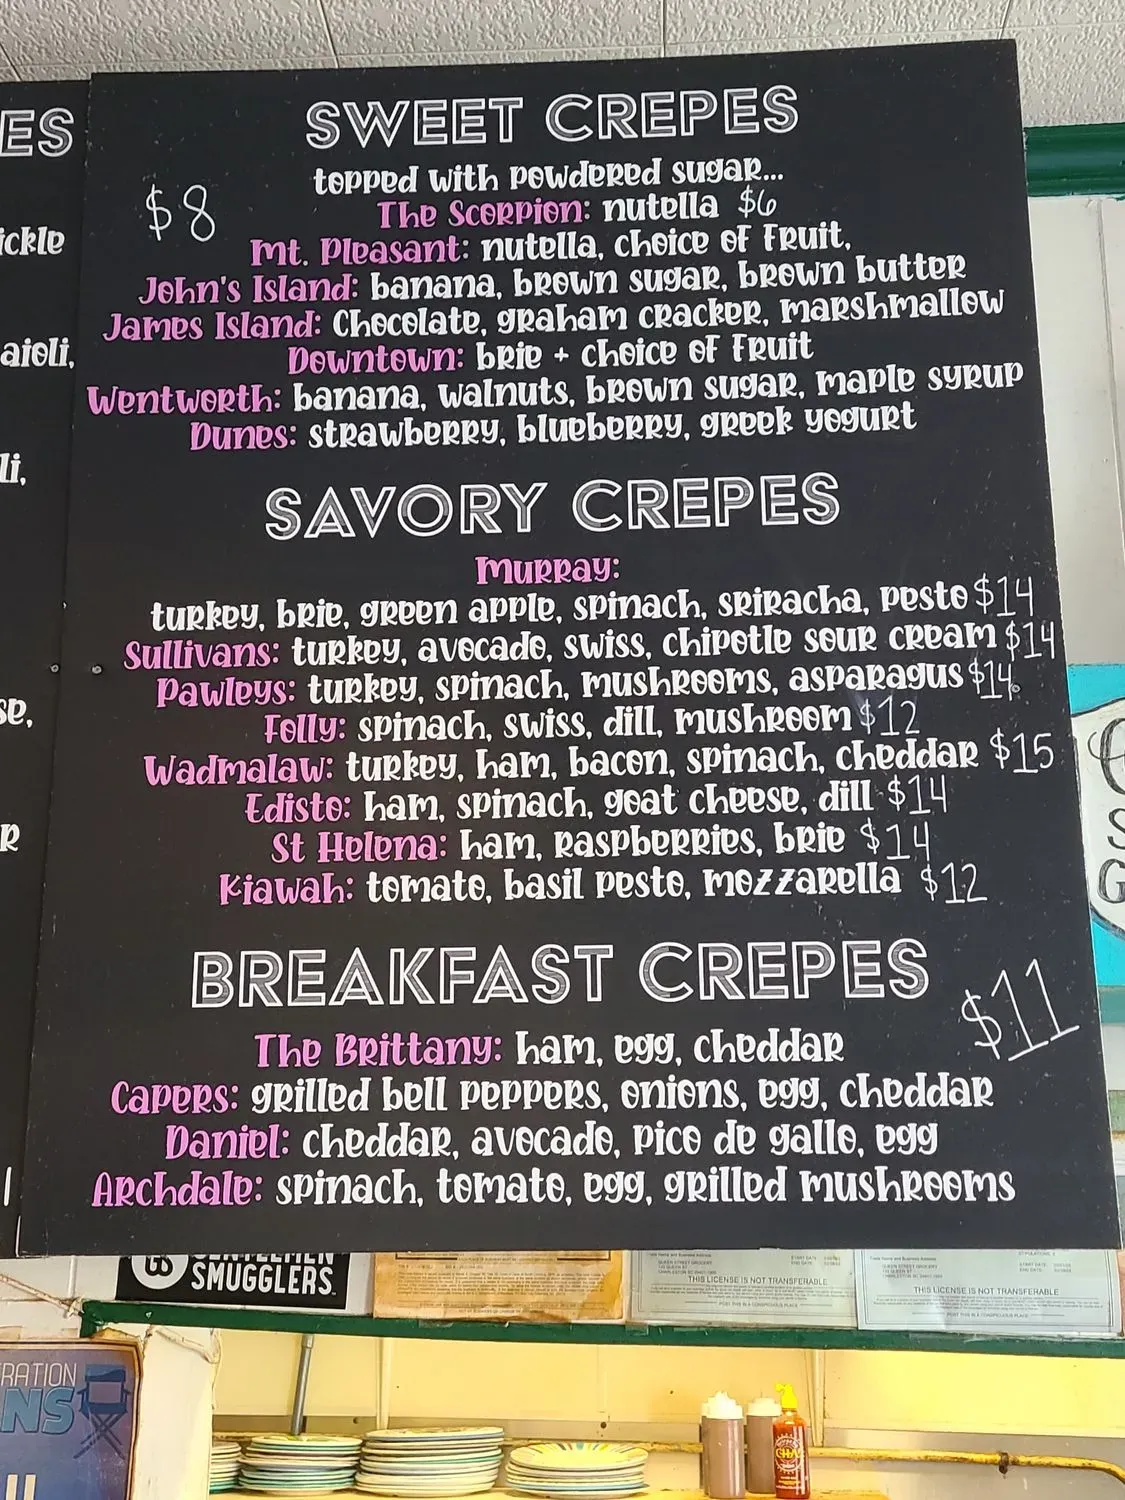 ES
ickle
aioli,
li,
se,
R
SWEET CREPES
topped with powdered sugar...
$8
The Scorpion: nutella $6
Mt. Pleasant: nutella, choice of fruit,
John's Island: banana, brown sugar, brown butter
James Island: Chocolate, graham cracker, marshmallow
Downtown: brie + choice of fruit
Wentworth: banana, walnuts, brown sugar, maple syrup
Dunes: strawberry, blueberry, greek yogurt
SAVORY CREPES
Murray:
turkey, brie, green apple, spinach, sriracha, pesto $14
Sullivans: turkey, avocado, swiss, chipotle sour cream $14
Pawleys: turkey, spinach, mushrooms, asparagus $14
Folly: spinach, swiss, dill, mushroom $12
Wadmalaw: turkey, ham, bacon, spinach, cheddar $15
Edisto: ham, spinach, goat cheese, dill $14
St Helena: ham, raspberries, brie $14
Kiawah: tomato, basil pesto, mozzarella $12
BREAKFAST CREPES
$11
The Brittany: ham, egg, cheddar
Capers: grilled bell peppers, onions, egg, cheddar
Daniel: cheddar, avocado, pico de gallo, egg
Archdale: spinach, tomato, egg, grilled mushrooms
S
G
GS
GENTLEMEN
SMUGGLERS
QUEEN STREET GROCERY
THIS LICENSE IS NOT TRANSFERABLE
POST THIS IN A CONSPICUOUS PLACE
QUEEN STREET GROCERY
THIS LICENSE IS NOT TRANSFERABLE
POST THIS IN A CONSPICUOUS PLACE
RATION
NS